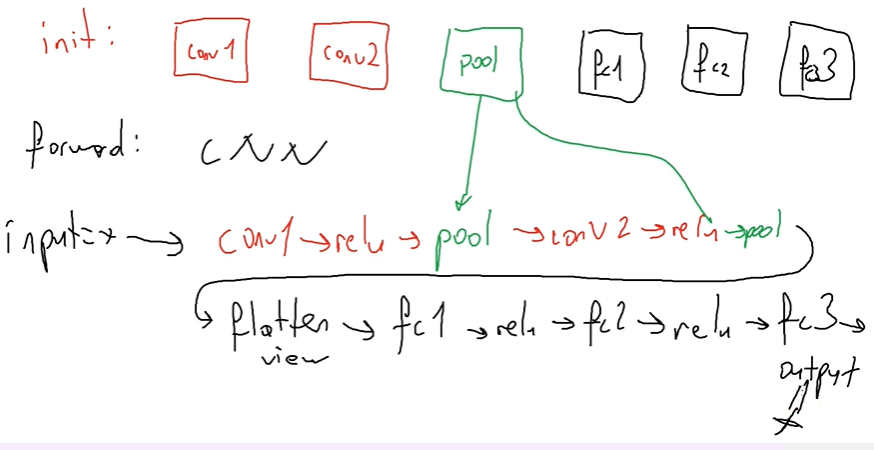 init: conv1 conv2 pool fc1 fc2 fc3
forward: CNN
input=x → conv1 → relu → pool → conv2 → relu → pool
flatten → fc1 → relu → fc2 → relu → fc3 →
view
output
x